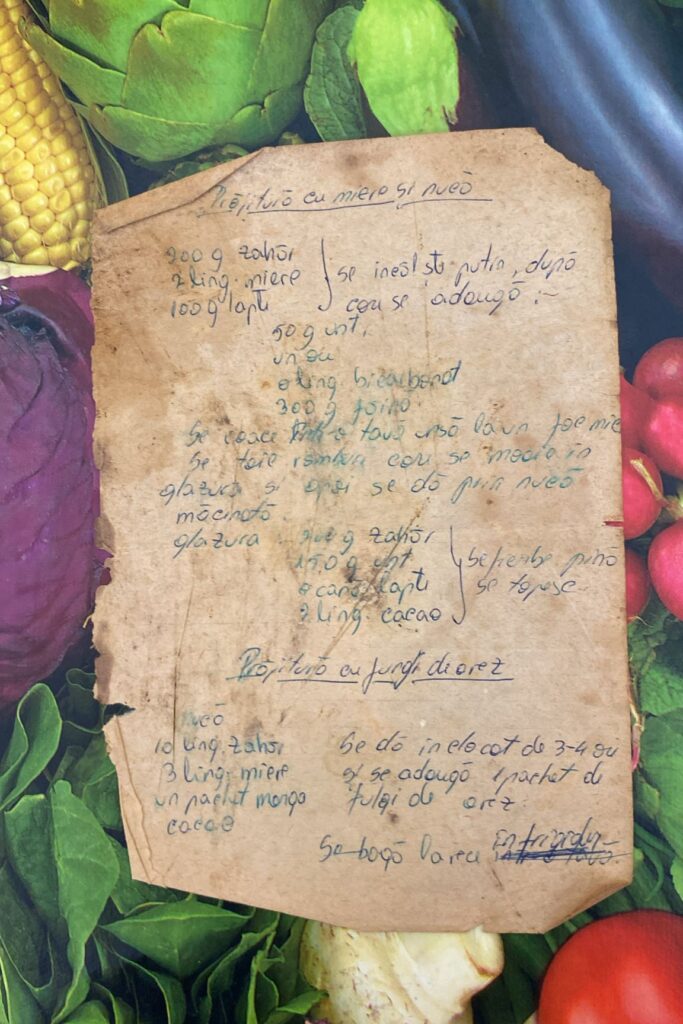 Prăjitură cu miere și nucă
200 g zahăr
2 ling. miere
100 g lapte
se încălzște puțin, după
care se adaugă :-
50 g unt,
un ou
o ling. bicarbonat
300 g făină.
Se coace într-o tavă unsă la un foc mic
Se taie romburi care se moaie în
glazură și apoi se dă prin nucă
măcinată.
glazura 200 g zahăr
150 g unt
o cană lapte
2 ling. cacao
Se fierbe pînă
se topesc.
Prăjitură cu fungi de orez
nucă
10 ling. zahăr
3 ling. miere
un pachet marga
cacao
Se dă în clocot de 3-4 ori
și se adaugă 1 pachet de
fulgi de orez.
Se bagă la rece în frigider